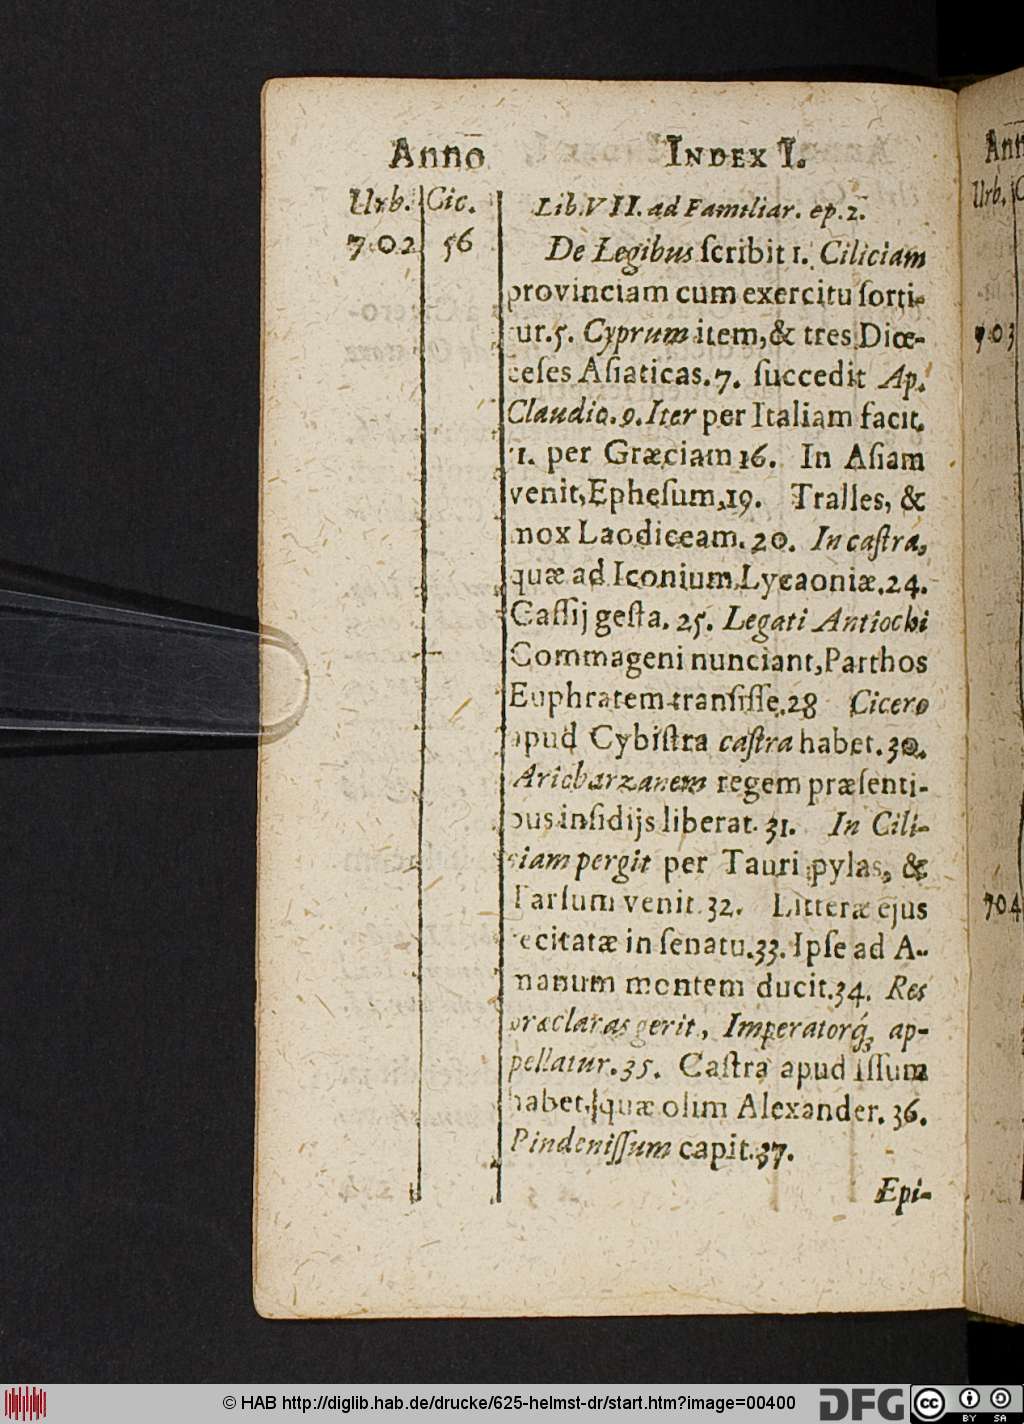 Anno INDEX I.
Urb. Cic. Lib. VII. ad Familiar. ep. 2.
702 56 De Legibus ſcribit 1. Ciliciam
provinciam cum exercitu ſorti-
tur. 5. Cyprum item, & tres Diœ-
ceſes Aſiaticas. 7. ſuccedit Ap.
Claudio. 9. Iter per Italiam facit.
11. per Græciam 16. In Aſiam
venit, Epheſum, 19. Tralles, &
mox Laodiceam. 20. In caſtra,
quæ ad Iconium Lycaoniæ. 24.
Caſſij geſta. 25. Legati Antiochi
Commageni nunciant, Parthos
Euphratem tranſiſſe. 28 Cicero
apud Cybiſtra caſtra habet. 30.
Aricbarzanem regem præſenti-
bus inſidijs liberat. 31. In Cili-
ciam pergit per Tauri pylas, &
Tarſum venit. 32. Litteræ ejus
recitatæ in ſenatu. 33. Ipſe ad A-
manum montem ducit. 34. Res
præclaras gerit, Imperatorq́; ap-
pellatur. 35. Caſtra apud Iſſum
habet, quæ olim Alexander. 36.
Pindeniſſum capit. 37.
Epi-
Urb.
703
704
© HAB http://diglib.hab.de/drucke/625-helmst-dr/start.htm?image=00400
DFG
cc BY SA